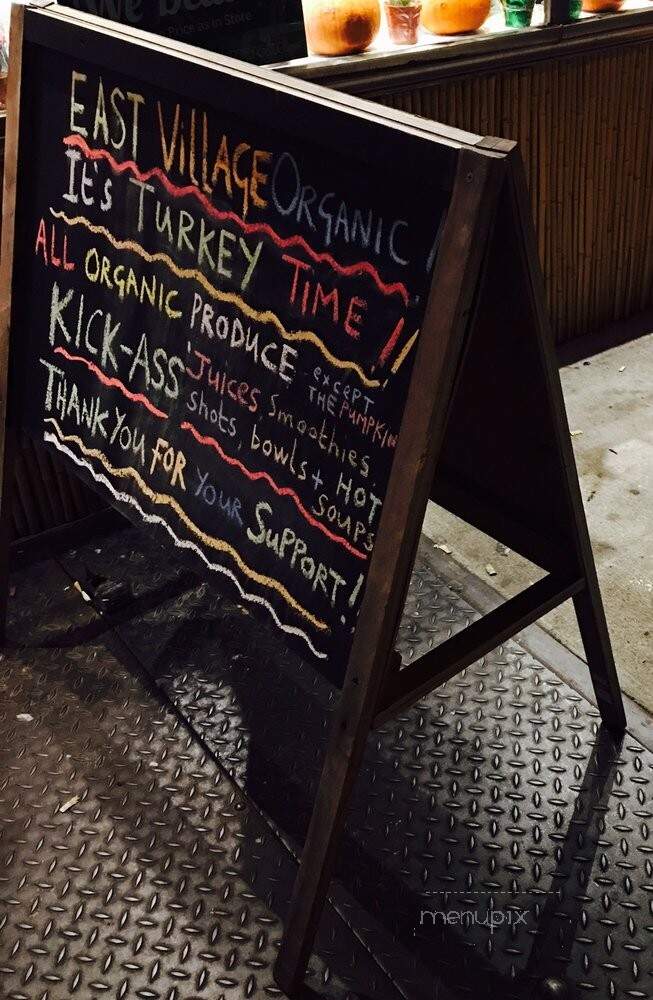 We
Price as in Store
EAST VILLAGE ORGANIC !
It's TURKEY TIME !!
ALL ORGANIC PRODUCE except THE PUMPKIN
KICK-ASS Juices Smoothies
shots, bowls + HOT
SOUPS
THANK YOU FOR YOUR SUPPORT!
menupix